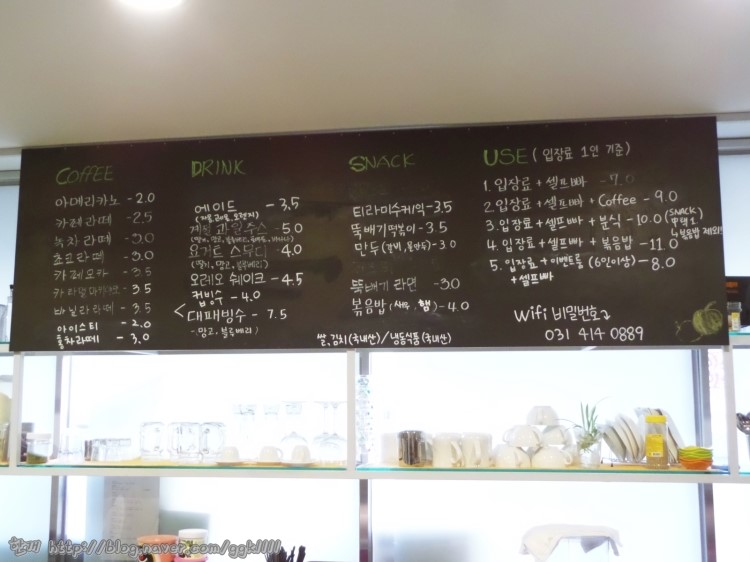 COFFEE
아메리카노 - 2.0
카페라떼 - 2.5
녹차라떼 - 3.0
초코라떼 - 3.0
카페모카 - 3.5
- 3.5
바닐라라떼 - 3.5
아이스티 - 2.0
홍차라떼 - 3.0
DRINK
에이드 - 3.5
계절과일쥬스 - 5.0
요거트 스무디 - 4.0
(딸기, 망고, 블루베리)
오레오 쉐이크 - 4.5
컵빙수 - 4.0
< 대패빙수 - 7.5
- 망고, 블루베리)
SNACK
티라미수케익 - 3.5
뚝배기떡볶이 - 3.5
만두 (갈비, 물만두) - 3.0
뚝배기 라면 - 3.0
볶음밥 (새우, 햄) - 4.0
쌀, 김치 (국내산) / 냉동식품 (국내산)
USE ( 입장료 1인 기준 )
1. 입장료 + 셀프빠 - 7.0
2. 입장료 + 셀프빠 + Coffee - 9.0
3. 입장료 + 셀프빠 + 분식 - 10.0 (SNACK) 中 택 1.
4. 입장료 + 셀프빠 + 볶음밥 - 11.0 ↳ 볶음밥 제외!
5. 입장료 + 이벤트룸 (6인이상) - 8.0
+ 셀프빠
Wifi 비밀번호
031 414 0889
http://blog.naver.com/ggkllll